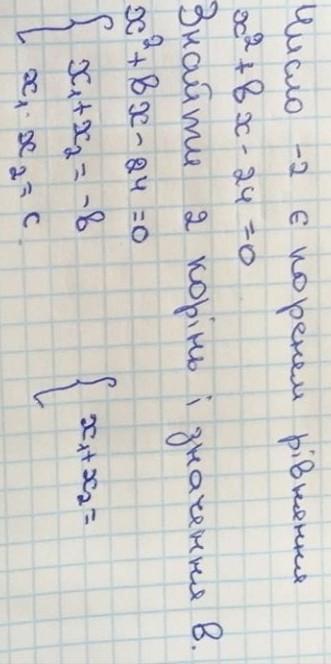 Число -2 є коренем рівняння
x² + вx - 24 = 0
Знайти 2 корінь і значення в.
x² + вx - 24 = 0
{ x₁ + x₂ = -в
x₁ · x₂ = c.
{ x₁ + x₂ =